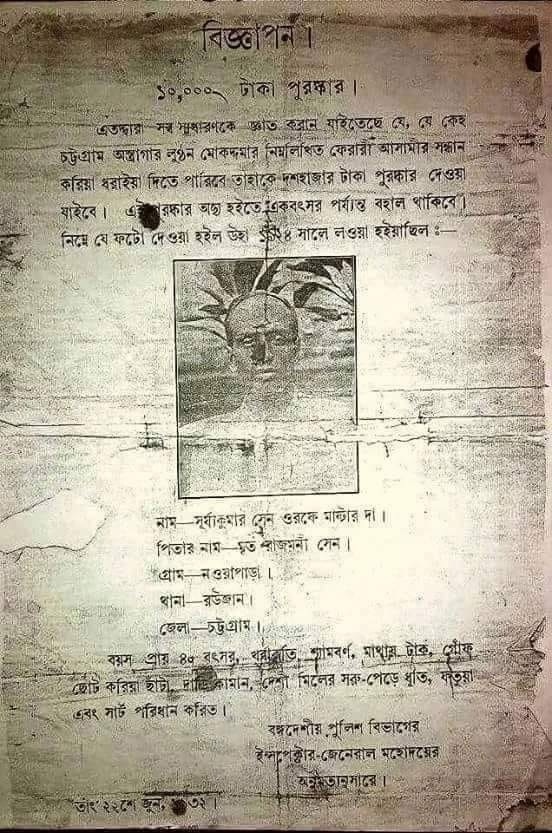 বিজ্ঞাপন।
১০,০০০৲ টাকা পুরষ্কার।
এতদ্দ্বারা সর্ব্ব সাধারণকে জ্ঞাত করান যাইতেছে যে, যে কেহ
চট্টগ্রাম অস্ত্রাগার লুণ্ঠন মোকদ্দমার নিম্নলিখিত ফেরারী আসামীর সন্ধান
করিয়া ধরাইয়া দিতে পারিবে তাহাকে দশহাজার টাকা পুরষ্কার দেওয়া
যাইবে। এই পুরষ্কার অদ্য হইতে একবৎসর পর্য্যন্ত বহাল থাকিবে।
নিম্নে যে ফটো দেওয়া হইল উহা ১৯২৪ সালে লওয়া হইয়াছিল :—
নাম—সূর্য্যকুমার সেন ওরফে মাষ্টার দা।
পিতার নাম—মৃত রাজমনী সেন।
গ্রাম—নওয়াপাড়া।
থানা—রাউজান।
জেলা—চট্টগ্রাম।
বয়স প্রায় ৪০ বৎসর, খর্ব্বাকৃতি, শ্যামবর্ণ, মাথায় টাক, গোঁফ
ছোট করিয়া ছাঁটা, দাড়ি কামান, দেশী মিলের সরু-পেড়ে ধুতি, ফতুয়া
এবং সার্ট পরিধান করিত।
বঙ্গদেশীয় পুলিশ বিভাগের
ইন্সপেক্টার-জেনেরাল মহোদয়ের
অনুমত্যানুসারে।
তাং ২২শে জুন, ১৯৩২।